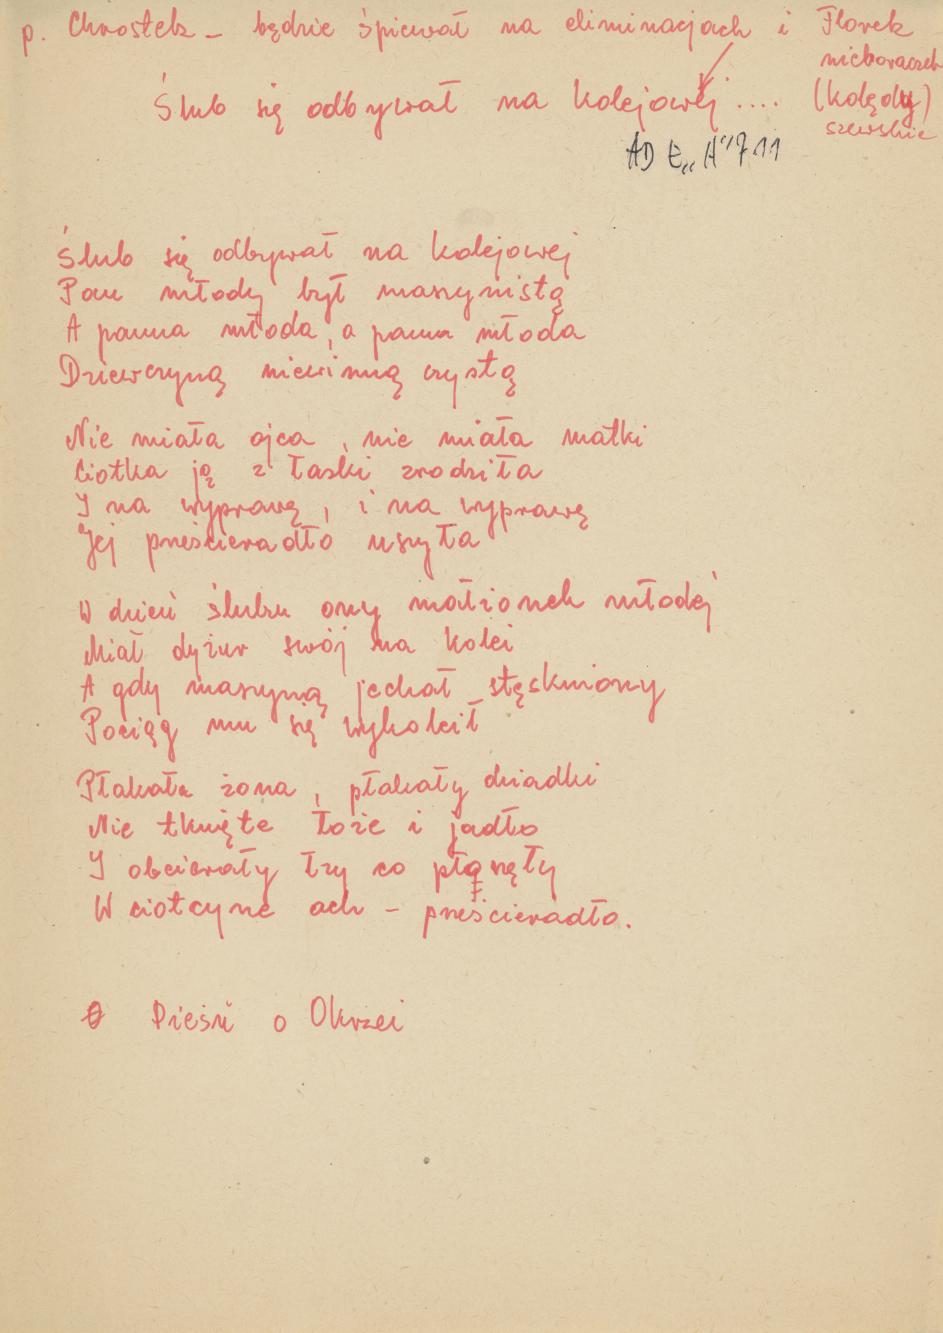 p. Chrostek – będzie śpiewał na eliminacjach i Florek
nieboraczek
Ślub się odbywał na Kolejowej .... (kolędy)
szewskie
AD Ł „A" 711
Ślub się odbywał na Kolejowej
Pan młody był maszynistą
A panna młoda, a panna młoda
Dziewczyną niewinną czystą
Nie miała ojca, nie miała matki
Ciotka ją z łaski zrodziła
I na wyprawę, i na wyprawę
Jej prześcieradło uszyła
W dzień ślubu ony małżonek młodej
Miał dyżur swój na kolei
A gdy maszyną jechał stęskniony
Pociąg mu się wykoleił
Płakała żona, płakały dziadki
Nie tknięte łoże i jadło
I obcierały łzy co płynęły
W ciotcyne ach – prześcieradło.
Pieśń o Okrzei